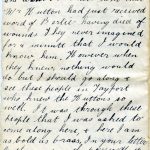 Mr & Hutton had just received
word of Bertie having died of
wounds. They never imagined
for a minute that I would
know him. However when
they knew nothing would
do but I should go along &
see these people in Tayport
who knew the Huttons so
well. It was through these
people that I was asked to
come along here, & here I am
as bold as brass. In your letter